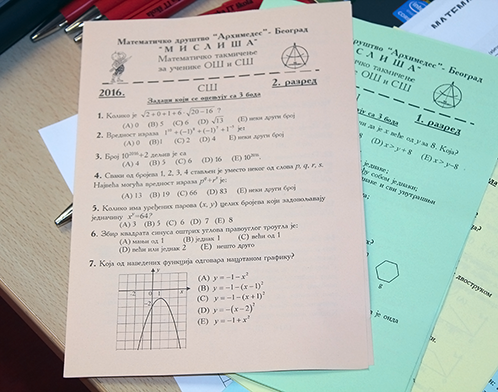 Математичко друштво "Архимедес" - Београд
"МИСЛИША"
Математичко такмичење
за ученике ОШ и СШ
2016.
СШ
2. разред
Задаци који се оцењују са 3 бода
1. Колико је √2+0+1+6 · √20−16 ?
(A) 0 (B) 5 (C) 6 (D) √13 (E) неки други број
2. Вредност израза
је:
(A) 0 (B) 1 (C) 2 (D) 4 (E) неки други број
3. Број
+2 дељив је са
(A) 4 (B) 5 (C) 6 (D) 16 (E)
4. Сваки од бројева 1, 2, 3, 4 стављен је уместо неког од слова p, q, r, s.
Највећа могућа вредност израза p^q + r^s је:
(A) 13 (B) 19 (C) 66 (D) 83 (E) неки други број
5. Колико има уређених парова (x, y) целих бројева који задовољавају
једначину x^y=64?
(A) 3 (B) 5 (C) 6 (D) 7 (E) 8
6. Збир квадрата синуса оштрих углова правоуглог троугла је:
(A) мањи од 1 (B) једнак 1 (C) већи од 1
(D) већи или једнак 2 (E) нешто друго
7. Која од наведених функција одговара нацртаном графику?
(A) y = −1 − x²
(B) y = −1 − (x−1)²
(C) y = −1 − (x+1)²
(D) y = −(x−2)²
(E) y = −1 + x²
y
1
x
друштво "Архимедес" - Београд
МИСЛИША"
такмичење
ОШ и СШ
1. разред
са 3 бода
да је x веће од y за 8. Која?
(D) x > y + 8 (E) x > y − 8
једнаке;
једнаки;
је онда
МАТЕМАТИ